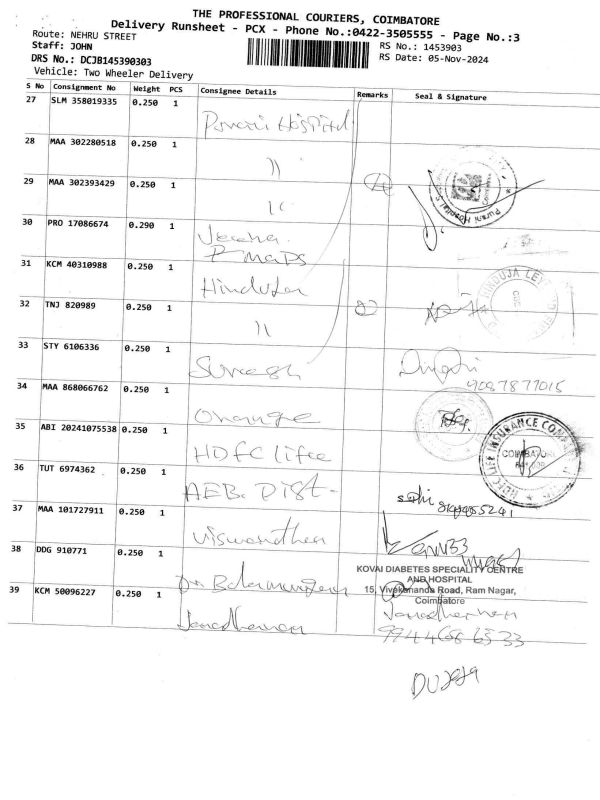 THE PROFESSIONAL COURIERS, COIMBATORE
Delivery Runsheet - PCX - Phone No.:0422-3505555 - Page No.:3
Route: NEHRU STREET
Staff: JOHN
RS No.: 1453903
DRS No.: DCJB145390303
RS Date: 05-Nov-2024
Vehicle: Two Wheeler Delivery
S No Consignment No Weight PCS Consignee Details Remarks Seal & Signature
27 SLM 358019335 0.250 1 Hospital
28 MAA 302280518 0.250 1 "
29 MAA 302393429 0.250 1 "
30 PRO 17086674 0.290 1
31 KCM 40310988 0.250 1 Hinduja
32 TNJ 820989 0.250 1 "
33 STY 6106336 0.250 1 Suresh
9087877015
34 MAA 868066762 0.250 1 Orange
35 ABI 20241075538 0.250 1 HDFC life
HDFC LIFE INSURANCE COMPANY
COIMBATORE
36 TUT 6974362 0.250 1 AEB. Dist-
37 MAA 101727911 0.250 1
38 DDG 910771 0.250 1
KOVAI DIABETES SPECIALITY CENTRE
AND HOSPITAL
15, Vivekananda Road, Ram Nagar,
Coimbatore
39 KCM 50096227 0.250 1